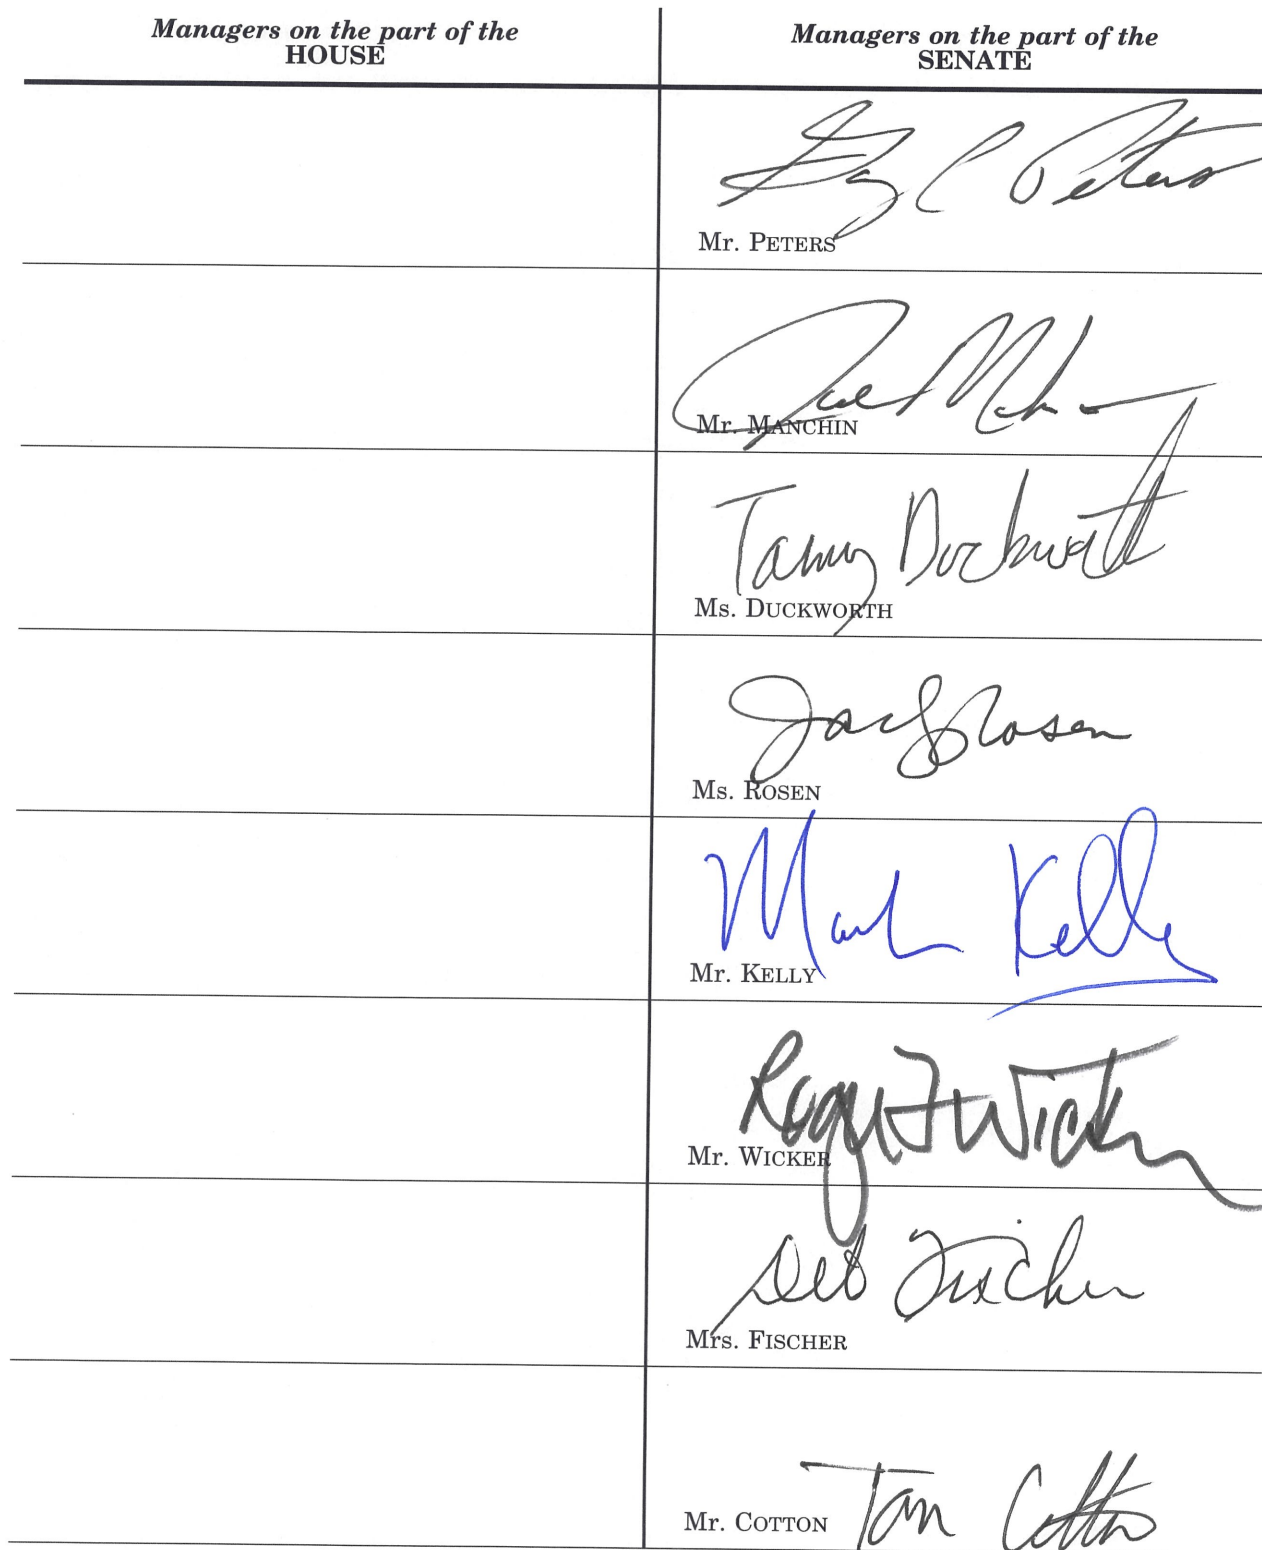 Managers on the part of the
HOUSE
Managers on the part of the
SENATE
Gary C Peters
Mr. PETERS
Joe Manchin
Mr. MANCHIN
Tammy Duckworth
Ms. DUCKWORTH
Jacky Rosen
Ms. ROSEN
Mark Kelly
Mr. KELLY
Roger F Wicker
Mr. WICKER
Deb Fischer
Mrs. FISCHER
Tom Cotton
Mr. COTTON